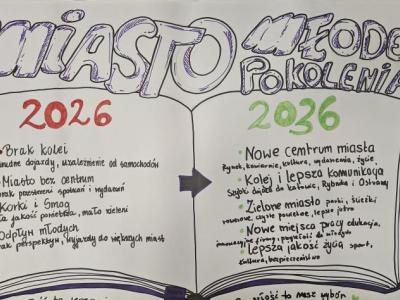 MIASTO MŁODE
POKOLENIA
2026
• Brak kolei
dojazdy, uzależnienie od samochodów
• Miasto bez centrum
brak przestrzeni spotkań i wydarzeń
Korki i Smog
jakość powietrza, mało zieleni
Odpływ młodych
brak perspektyw, wyjazdy do większych miast
2036
• Nowe centrum miasta
Rynek, kawiarnie, kultura, wydarzenia, życie
• Kolej i lepsza komunikacja
Szybki dojazd do Katowic, Rybnika, Ostravy
• Zielone miasto parki, ścieżki
rowerowe, czyste powietrze, lepsze jutro
• Nowe miejsca pracy edukacja,
innowacyjne firmy, młodych
• Lepsza jakość życia sport,
kultura, bezpieczeństwo